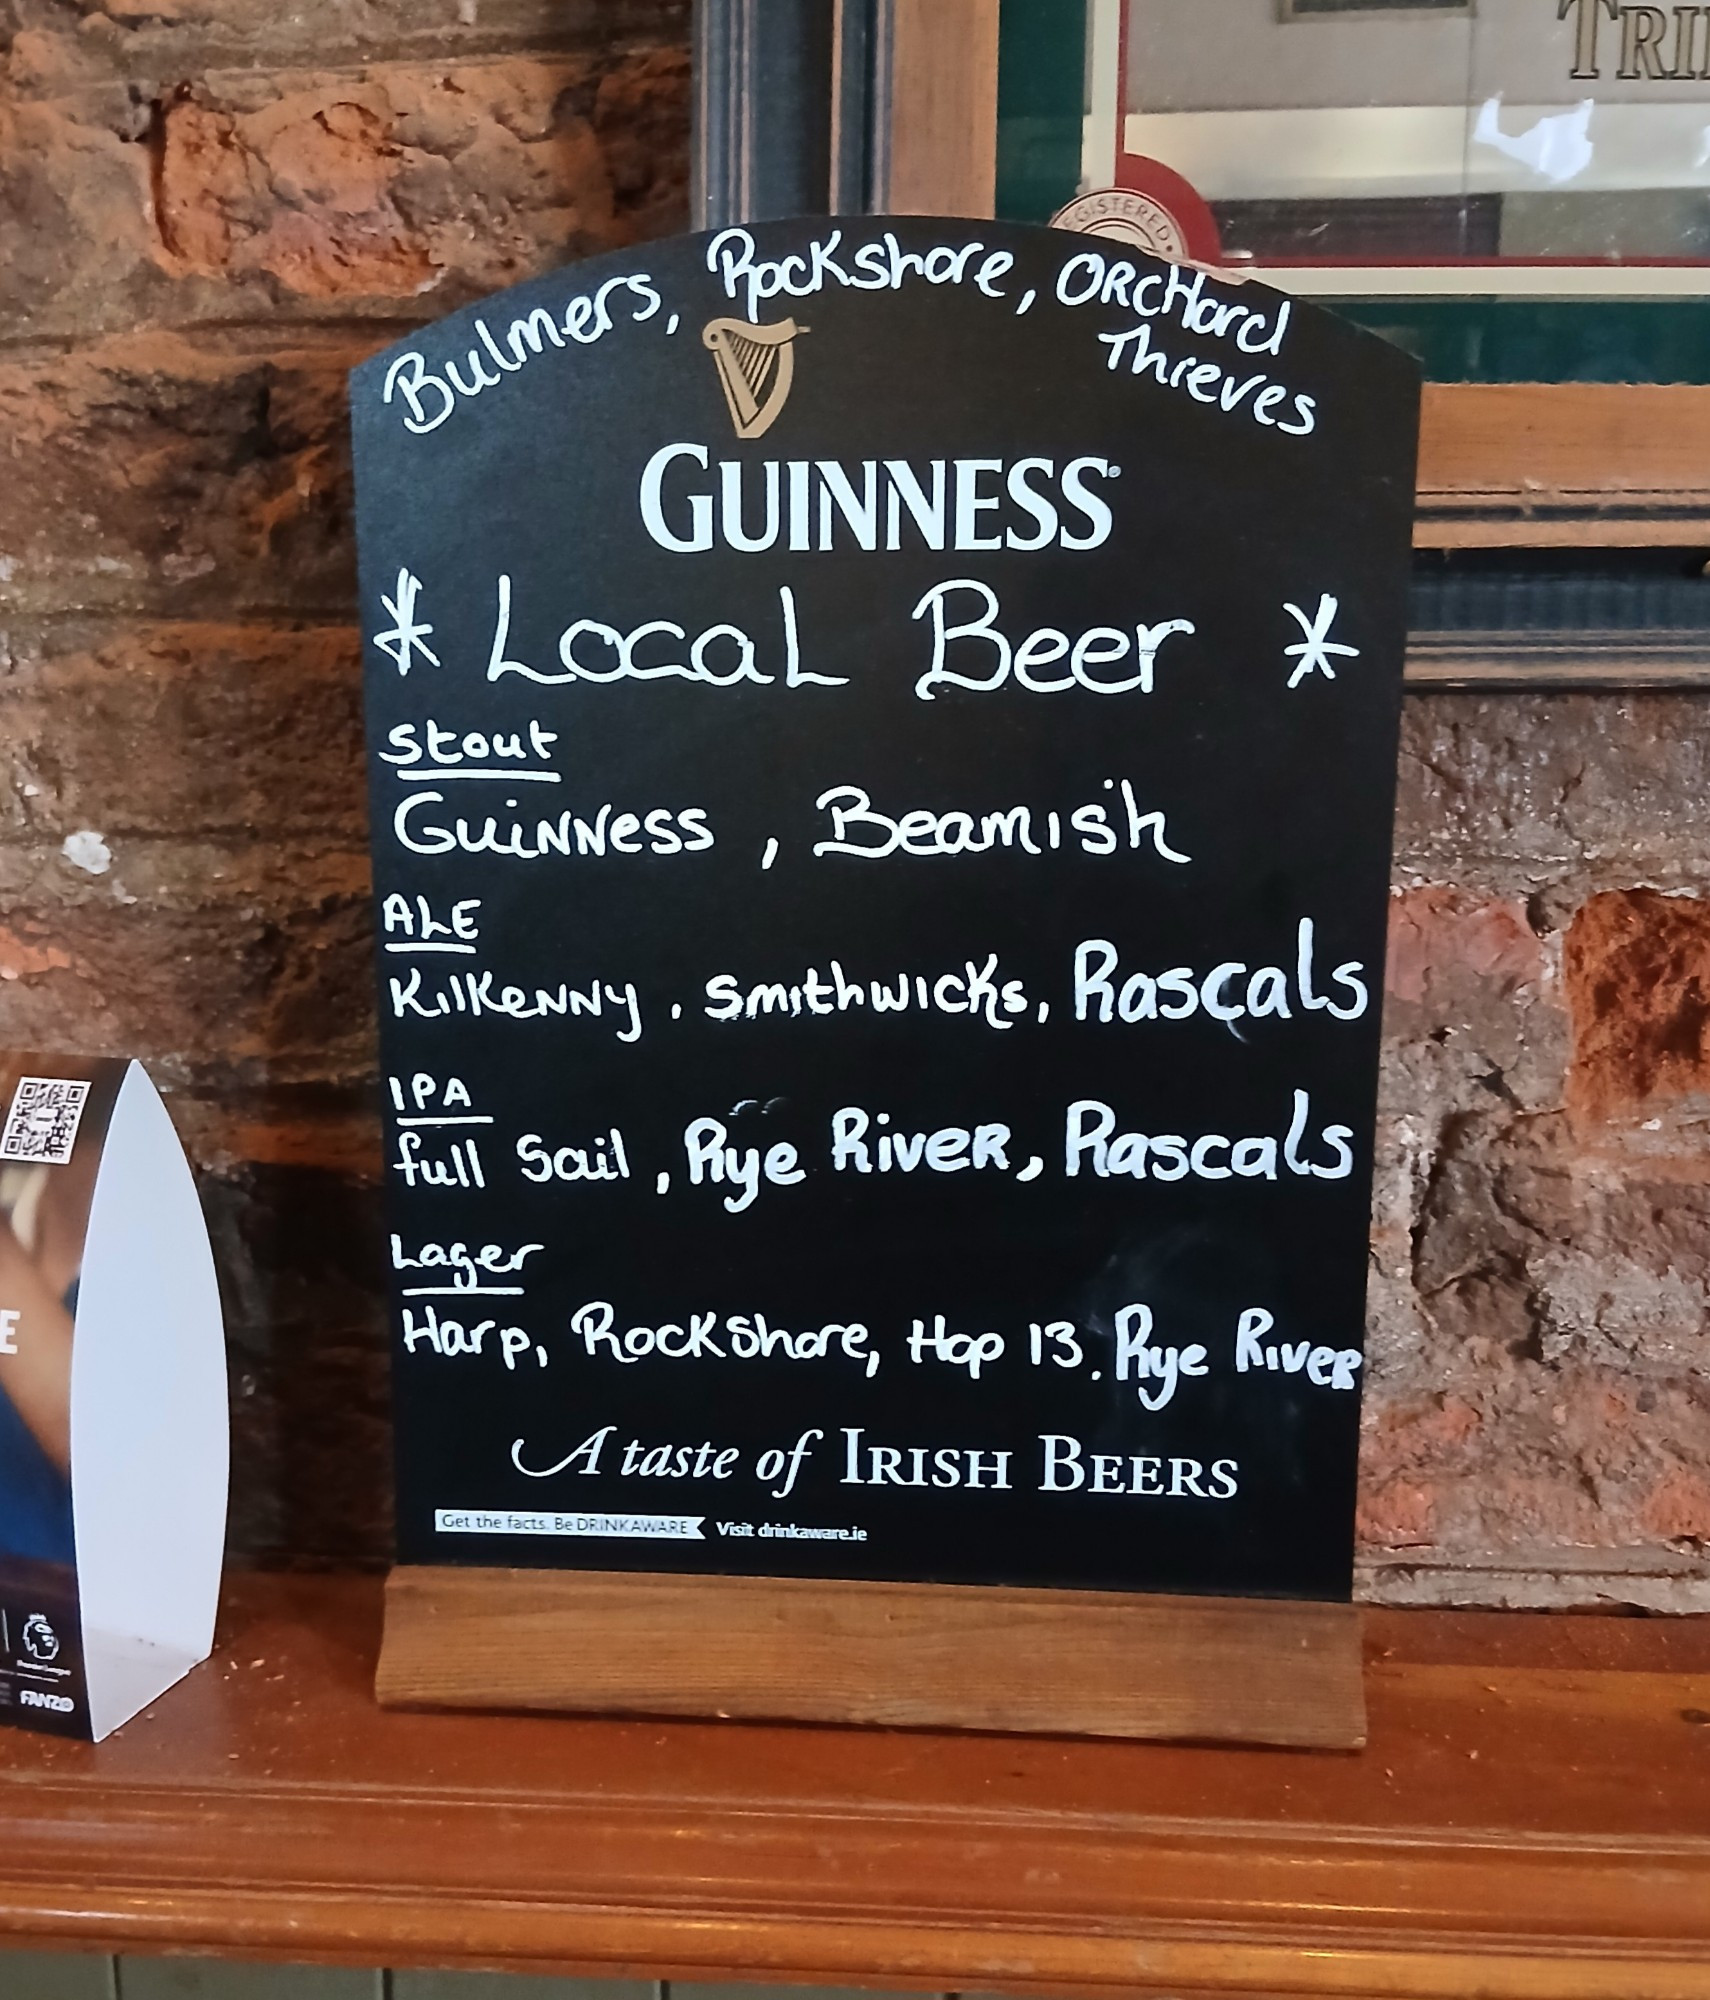 TRI
REGISTERED
Bulmers, Rockshore, ORCHard
Thieves
GUINNESS
* Local Beer *
Stout
Guinness, Beamish
ALE
Kilkenny, Smithwicks, Rascals
IPA
full Sail, Rye River, Rascals
Lager
Harp, Rockshore, Hop 13. Rye River
A taste of IRISH BEERS
Get the facts. Be DRINKAWARE Visit drinkaware.ie
E
Premier League
FANZO